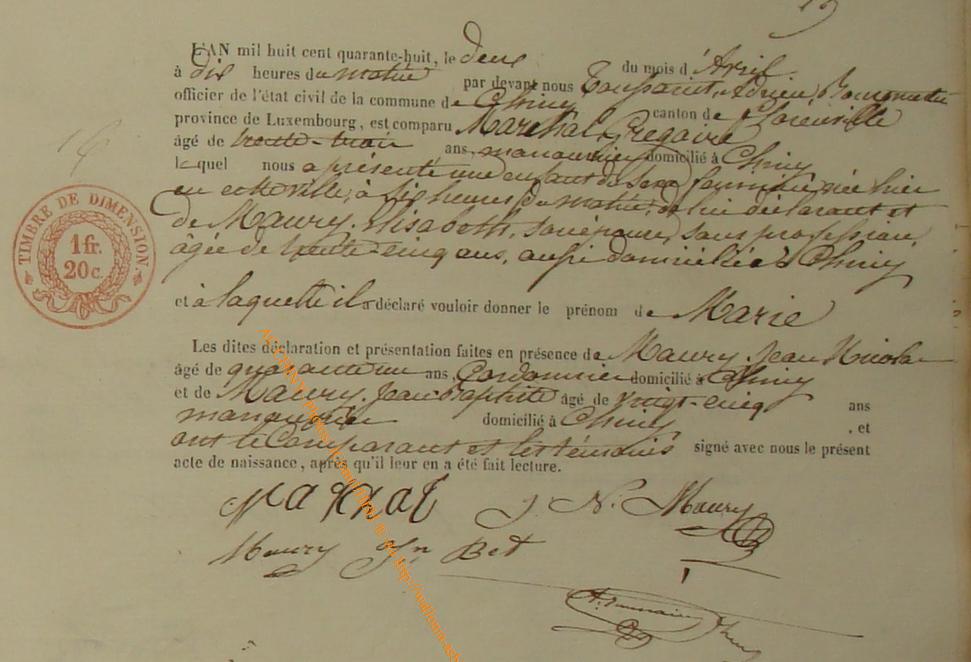 19
L'AN mil huit cent quarante-huit, le deux du mois d'Avril
à dix heures du matin par devant nous Toussaint, Adrien
officier de l'état civil de la commune de Chiny canton de Florenville
province de Luxembourg, est comparu Maréchal, Grégoire
âgé de trente-trois ans, manouvrier domicilié à Chiny
lequel nous a présenté une enfant du sexe féminin, née hier
en cette ville, à six heures du matin, de lui déclarant et
de Maury, Elisabeth, son épouse, sans profession,
âgée de trente-cinq ans, aussi domiciliée à Chiny
et à laquelle il a déclaré vouloir donner le prénom de Marie
Les dites déclaration et présentation faites en présence de Maury, Jean Nicolas
âgé de quarante un ans, Cordonnier domicilié à Chiny
et de Maury, Jean Baptiste âgé de vingt-cinq ans
manouvrier domicilié à Chiny, et
ont le Comparant et les témoins signé avec nous le présent
acte de naissance, après qu'il leur en a été fait lecture.
TIMBRE DE DIMENSION.
1 fr.
20 c.
J. N. Maury
Maury Jn Bet